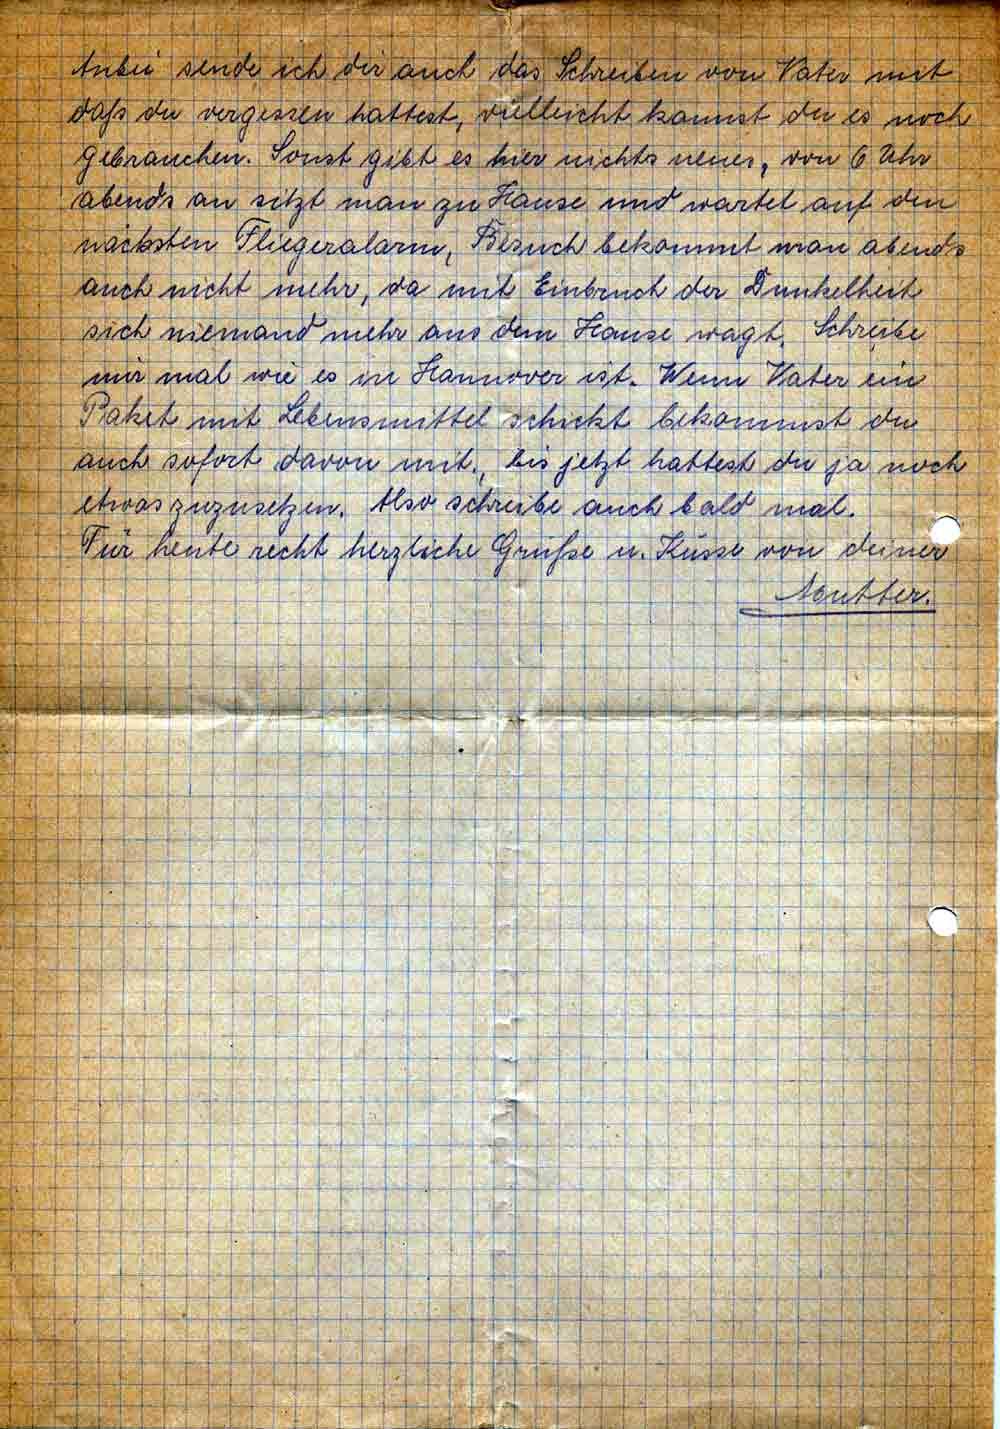 Anbei sende ich dir auch das Schreiben von Vater mit
daß du vergessen hattest, vielleicht kannst du es noch
gebrauchen. Sonst gibt es hier nichts neues, von 6 Uhr
abends an sitzt man zu Hause und wartet auf den
nächsten Fliegeralarm, Besuch bekommt man abends
auch nicht mehr, da mit Einbruch der Dunkelheit
sich niemand mehr aus dem Hause wagt. Schreibe
mir mal wie es in Hannover ist. Wenn Vater ein
Paket mit Lebensmittel schickt bekommst du
auch sofort davon mit, bis jetzt hattest du ja noch
etwas zuzusetzen. Also schreibe auch bald mal.
Für heute recht herzliche Grüße u. Küsse von deiner
Mutter.